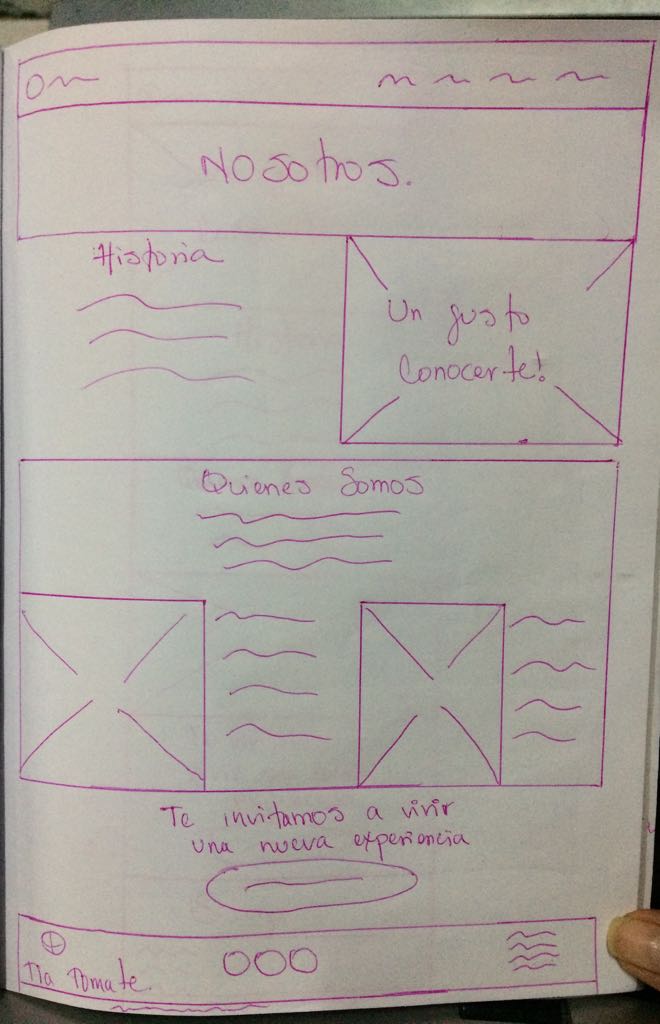 Nosotros.
Historia
Un gusto
Conocerte!
Quienes Somos
Te invitamos a vivir
una nueva experiencia
Tía Tomate.